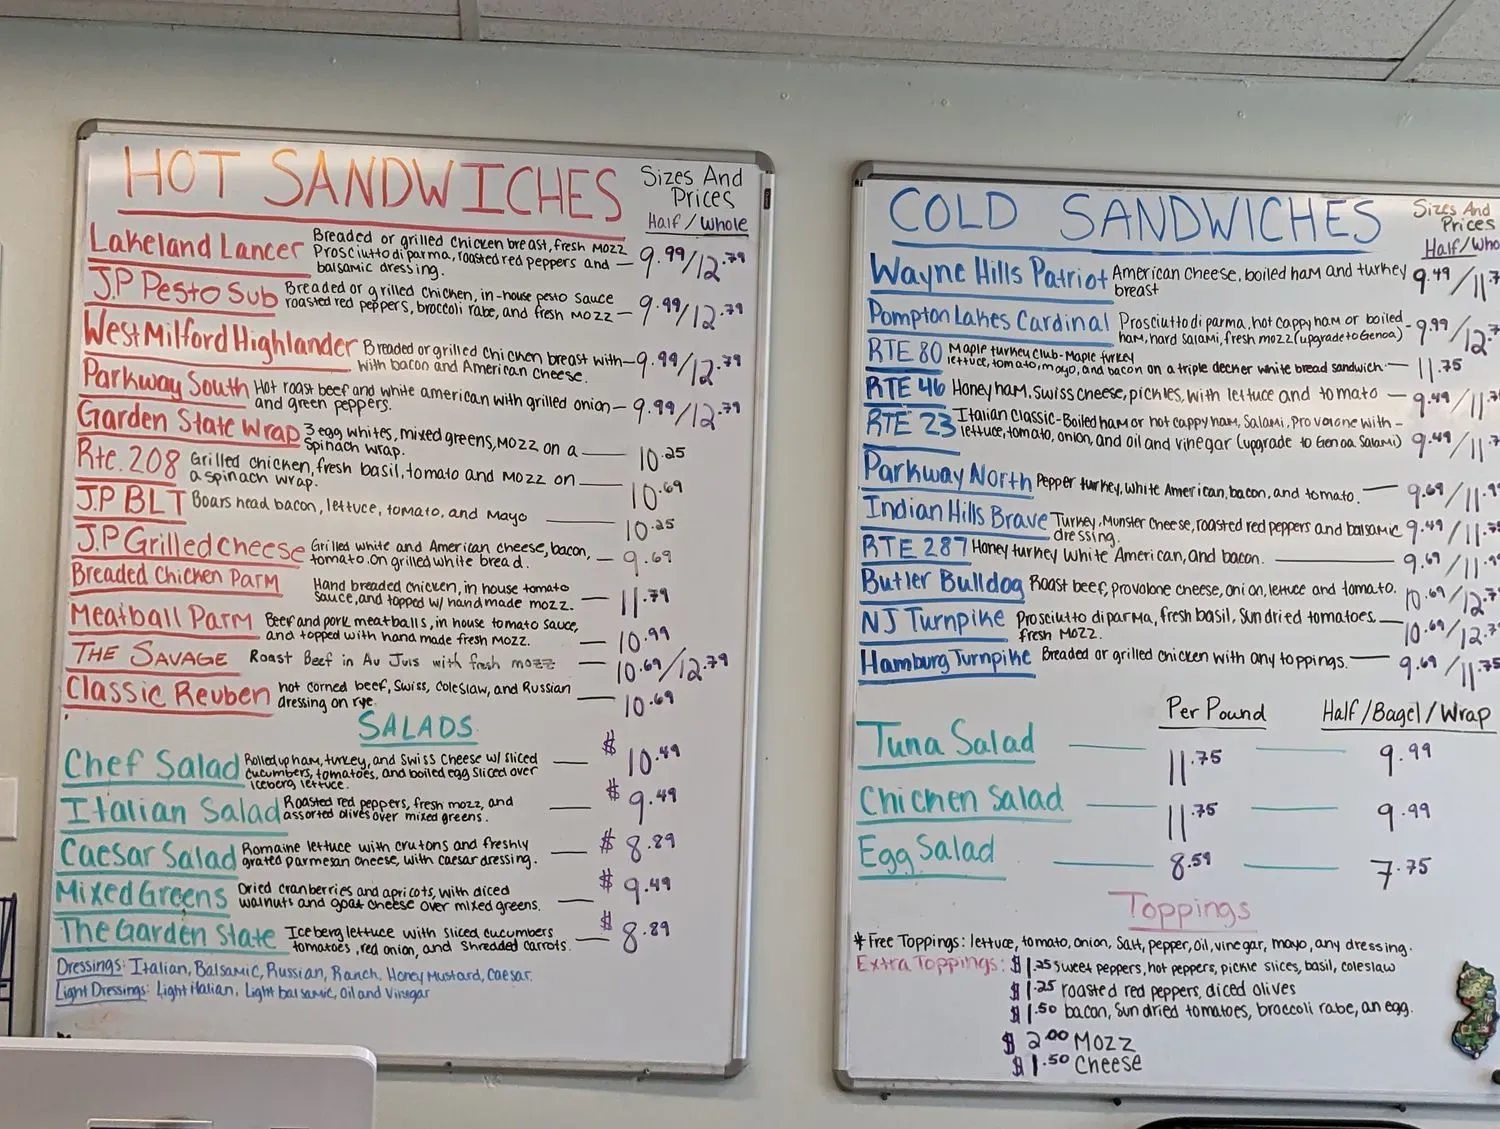 HOT SANDWICHES
Sizes And
Prices
Half / Whole
Lakeland Lancer Breaded or grilled chicken breast, fresh mozz
Prosciutto di parma, roasted red peppers and — 9.99/12.79
balsamic dressing.
J.P Pesto Sub Breaded or grilled chicken, in-house pesto sauce
roasted red peppers, broccoli rabe, and fresh mozz — 9.99/12.79
West Milford Highlander Breaded or grilled chicken breast with — 9.99/12.79
with bacon and American cheese.
Parkway South Hot roast beef and white american with grilled onion — 9.99/12.79
and green peppers.
Garden State Wrap 3 egg whites, mixed greens, mozz on a — 10.25
spinach wrap.
Rte. 208 Grilled chicken, fresh basil, tomato and mozz on — 10.69
a spinach wrap.
J.P BLT Boars head bacon, lettuce, tomato, and mayo — 10.25
J.P Grilled cheese Grilled white and American cheese, bacon, — 9.69
tomato. on grilled white bread.
Breaded Chicken Parm Hand breaded chicken, in house tomato
sauce, and topped w/ handmade mozz. — 11.79
Meatball Parm Beef and pork meatballs, in house tomato sauce,
and topped with hand made fresh mozz. — 10.99
The Savage Roast Beef in Au Jus with fresh mozz — 10.69/12.79
Classic Reuben hot corned beef, Swiss, coleslaw, and Russian — 10.69
dressing on rye.
SALADS
Chef Salad Rolled up ham, turkey, and Swiss cheese w/ sliced — $10.49
cucumbers, tomatoes, and boiled egg sliced over
iceberg lettuce.
Italian Salad Roasted red peppers, fresh mozz, and — $9.49
assorted olives over mixed greens.
Caesar Salad Romaine lettuce with crutons and freshly — $8.89
grated parmesan cheese, with caesar dressing.
Mixed Greens Dried cranberries and apricots, with diced — $9.49
walnuts and goat cheese over mixed greens.
The Garden State Iceberg lettuce with sliced cucumbers — $8.89
tomatoes, red onion, and shredded carrots.
Dressings: Italian, Balsamic, Russian, Ranch, Honey Mustard, Caesar.
Light Dressings: Light italian, Light balsamic, Oil and Vinegar
COLD SANDWICHES
Sizes And
Prices
Half/Who
Wayne Hills Patriot American cheese, boiled ham and turkey 9.49/11.7
breast
Pompton Lakes Cardinal Prosciutto di parma, hot cappy ham or boiled - 9.99/12.7
ham, hard salami, fresh mozz (upgrade to Genoa)
RTE 80 Maple turkey club - Maple turkey
lettuce, tomato, mayo, and bacon on a triple decker white bread sandwich. — 11.75
RTE 46 Honey ham, swiss cheese, pickles, with lettuce and tomato — 9.49/11.7
RTE 23 Italian classic - Boiled ham or hot cappy ham, Salami, Provolone with -
lettuce, tomato, onion, and oil and vinegar (upgrade to Genoa Salami) 9.49/11.7
Parkway North Pepper turkey, white American, bacon, and tomato. — 9.69/11.9
Indian Hills Brave Turkey, Munster cheese, roasted red peppers and balsamic 9.49/11.75
dressing.
RTE 287 Honey turkey white American, and bacon. — 9.69/11.9
Butler Bulldog Roast beef, provolone cheese, onion, lettuce and tomato. 10.69/12.7
NJ Turnpike Prosciutto di parma, fresh basil, sun dried tomatoes. — 10.69/12.7
fresh mozz.
Hamburg Turnpike Breaded or grilled chicken with any toppings. — 9.69/11.75
Per Pound Half / Bagel / Wrap
Tuna Salad — 11.75 — 9.99
Chicken Salad — 11.75 — 9.99
Egg Salad — 8.59 — 7.75
Toppings
* Free Toppings: lettuce, tomato, onion, salt, pepper, oil, vinegar, mayo, any dressing.
Extra Toppings: $1.25 sweet peppers, hot peppers, pickle slices, basil, coleslaw
$1.25 roasted red peppers, diced olives
$1.50 bacon, sun dried tomatoes, broccoli rabe, an egg.
$2.00 Mozz
$1.50 Cheese